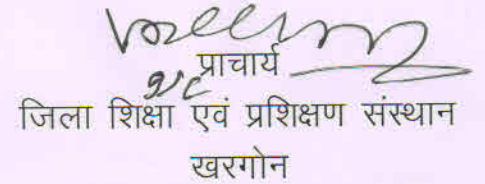 प्राचार्य
जिला शिक्षा एवं प्रशिक्षण संस्थान
खरगोन